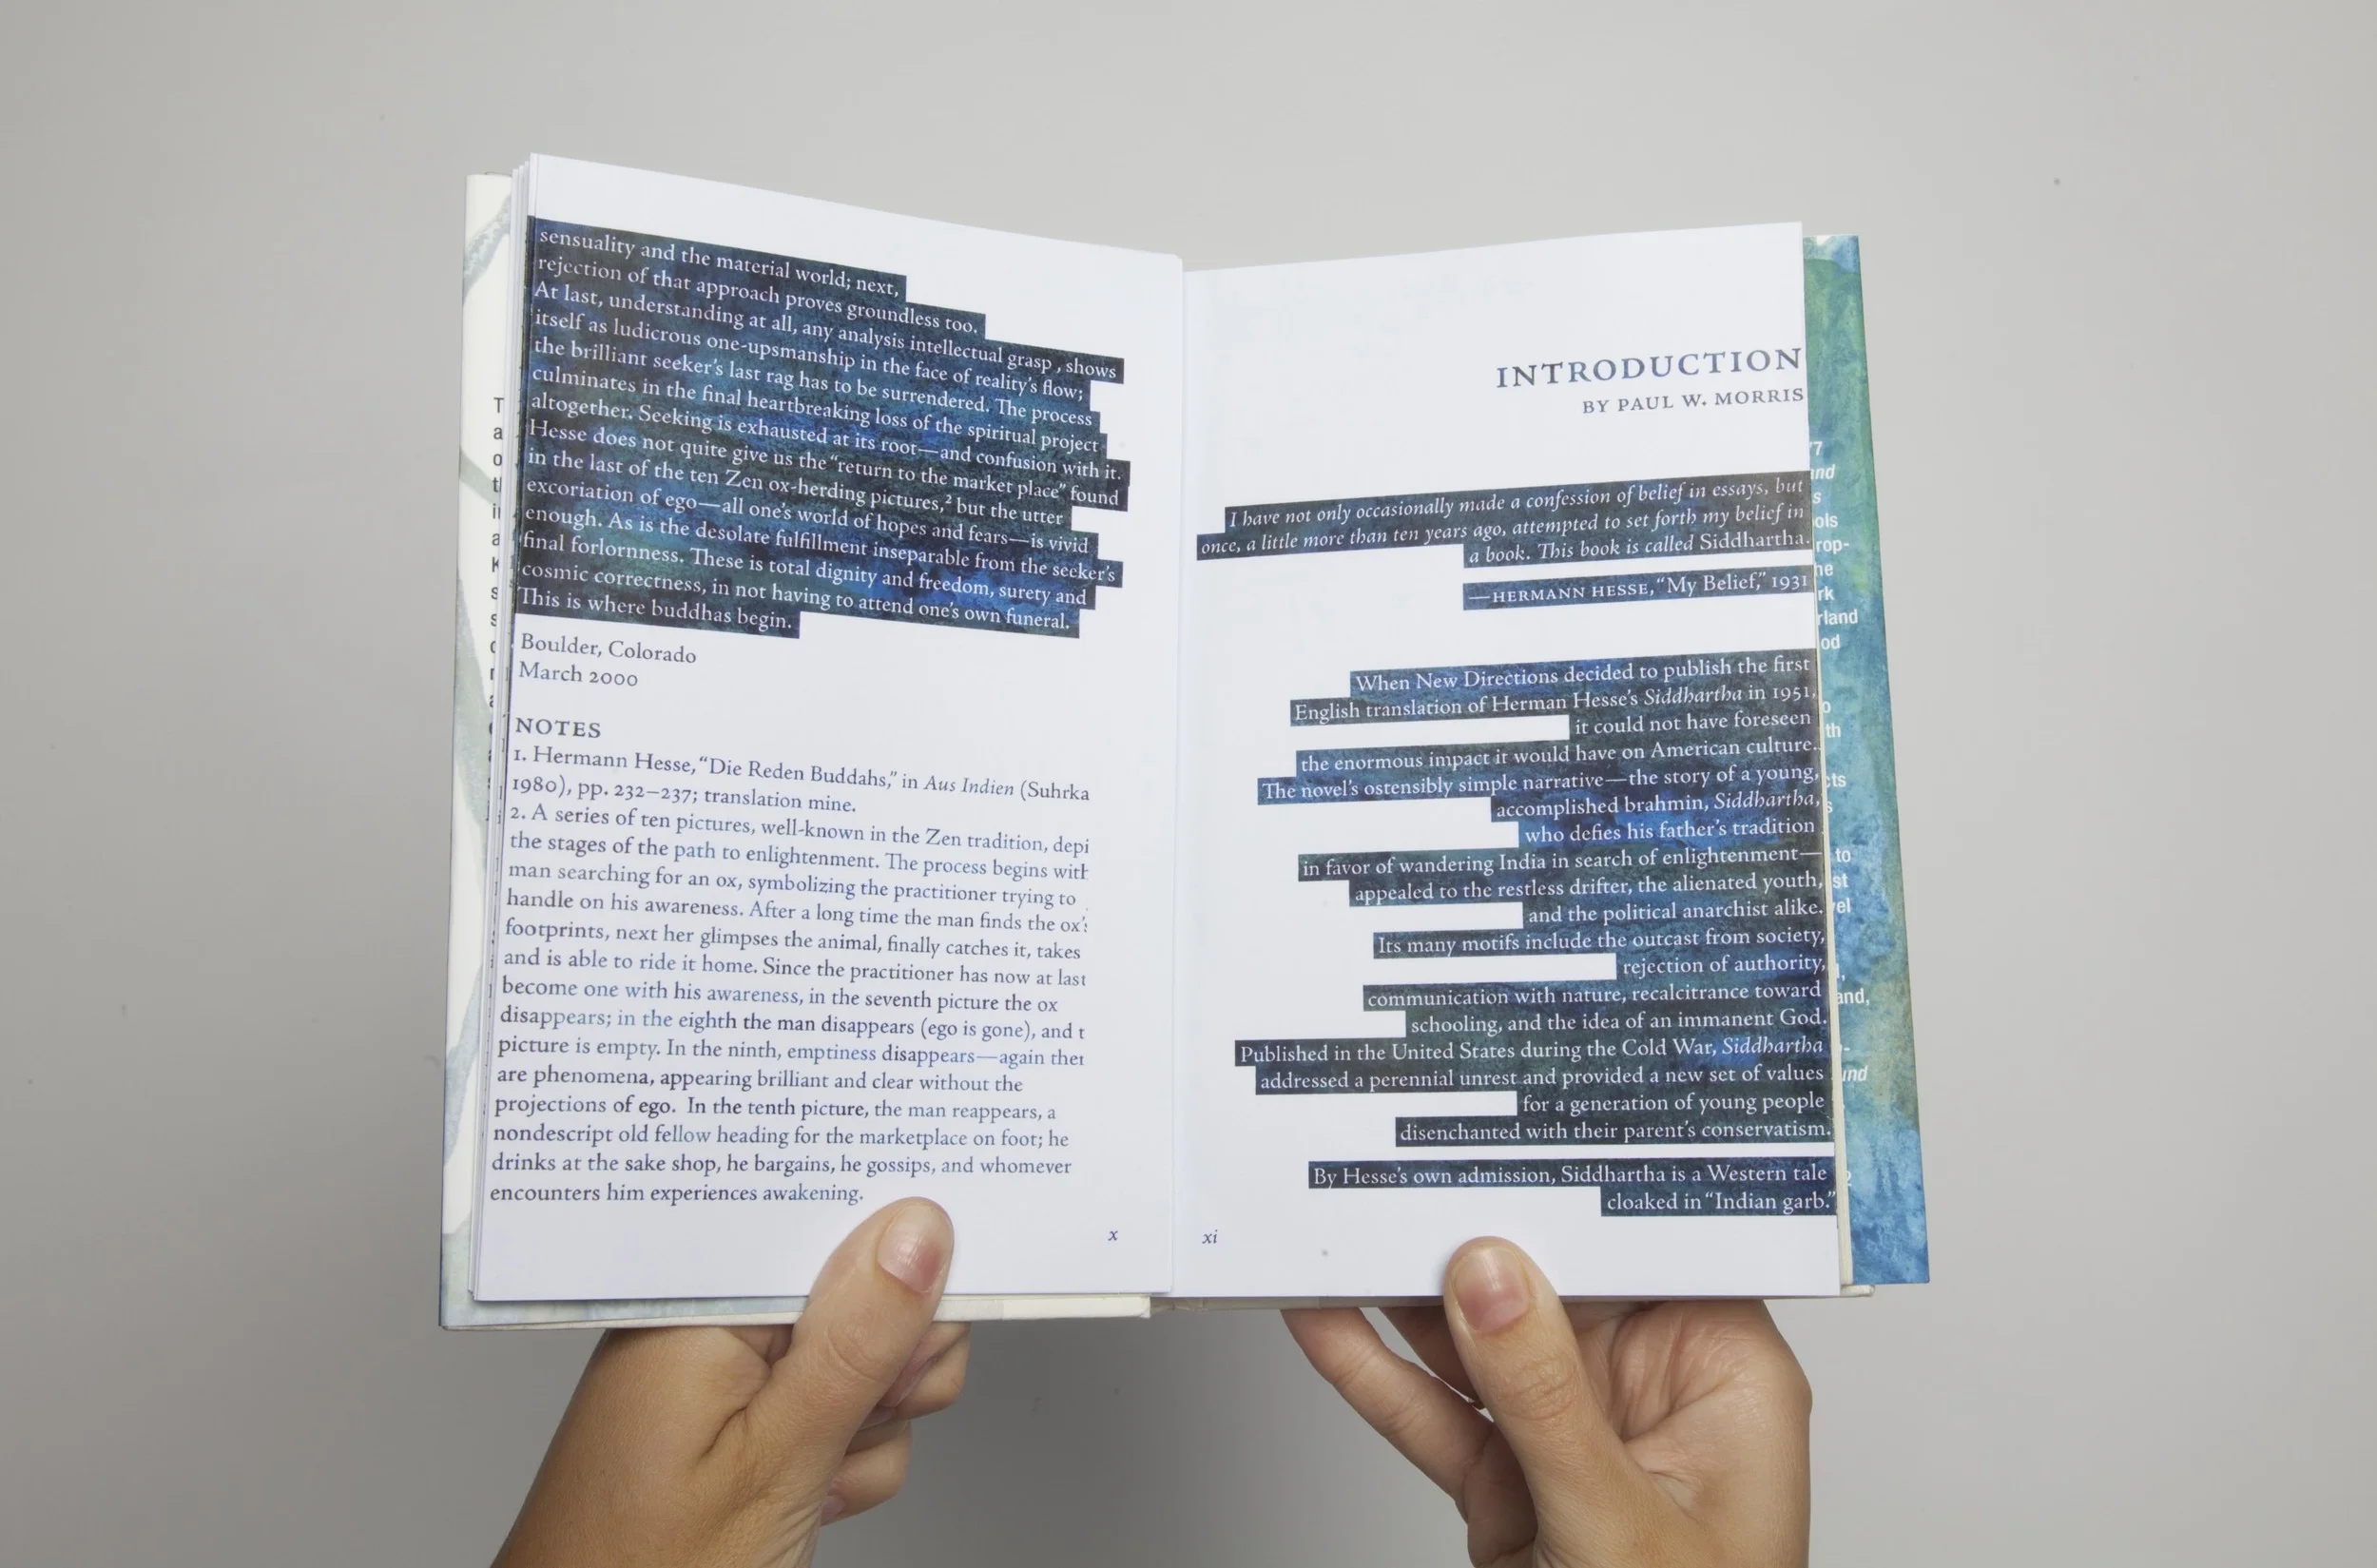 sensuality and the material world; next,
rejection of that approach proves groundless too.
At last, understanding at all, any analysis intellectual grasp , shows
itself as ludicrous one-upsmanship in the face of reality's flow;
the brilliant seeker's last rag has to be surrendered. The process
culminates in the final heartbreaking loss of the spiritual project
altogether. Seeking is exhausted at its root—and confusion with it.
Hesse does not quite give us the “return to the market place” found
in the last of the ten Zen ox-herding pictures,² but the utter
excoriation of ego—all one's world of hopes and fears—is vivid
enough. As is the desolate fulfillment inseparable from the seeker's
final forlornness. These is total dignity and freedom, surety and
cosmic correctness, in not having to attend one's own funeral.
This is where buddhas begin.
Boulder, Colorado
March 2000
NOTES
1. Hermann Hesse, “Die Reden Buddahs,” in Aus Indien (Suhrka
1980), pp. 232–237; translation mine.
2. A series of ten pictures, well-known in the Zen tradition, depi
the stages of the path to enlightenment. The process begins with
man searching for an ox, symbolizing the practitioner trying to
handle on his awareness. After a long time the man finds the ox's
footprints, next her glimpses the animal, finally catches it, takes
and is able to ride it home. Since the practitioner has now at last
become one with his awareness, in the seventh picture the ox
disappears; in the eighth the man disappears (ego is gone), and t
picture is empty. In the ninth, emptiness disappears—again ther
are phenomena, appearing brilliant and clear without the
projections of ego. In the tenth picture, the man reappears, a
nondescript old fellow heading for the marketplace on foot; he
drinks at the sake shop, he bargains, he gossips, and whomever
encounters him experiences awakening.
x
INTRODUCTION
BY PAUL W. MORRIS
I have not only occasionally made a confession of belief in essays, but
once, a little more than ten years ago, attempted to set forth my belief in
a book. This book is called Siddhartha.
—HERMANN HESSE, “My Belief,” 1931
When New Directions decided to publish the first
English translation of Herman Hesse's Siddhartha in 1951,
it could not have foreseen
the enormous impact it would have on American culture.
The novel's ostensibly simple narrative—the story of a young,
accomplished brahmin, Siddhartha,
who defies his father's tradition
in favor of wandering India in search of enlightenment—
appealed to the restless drifter, the alienated youth,
and the political anarchist alike.
Its many motifs include the outcast from society,
rejection of authority,
communication with nature, recalcitrance toward
schooling, and the idea of an immanent God.
Published in the United States during the Cold War, Siddhartha
addressed a perennial unrest and provided a new set of values
for a generation of young people
disenchanted with their parent's conservatism.
By Hesse's own admission, Siddhartha is a Western tale
cloaked in “Indian garb.”
xi